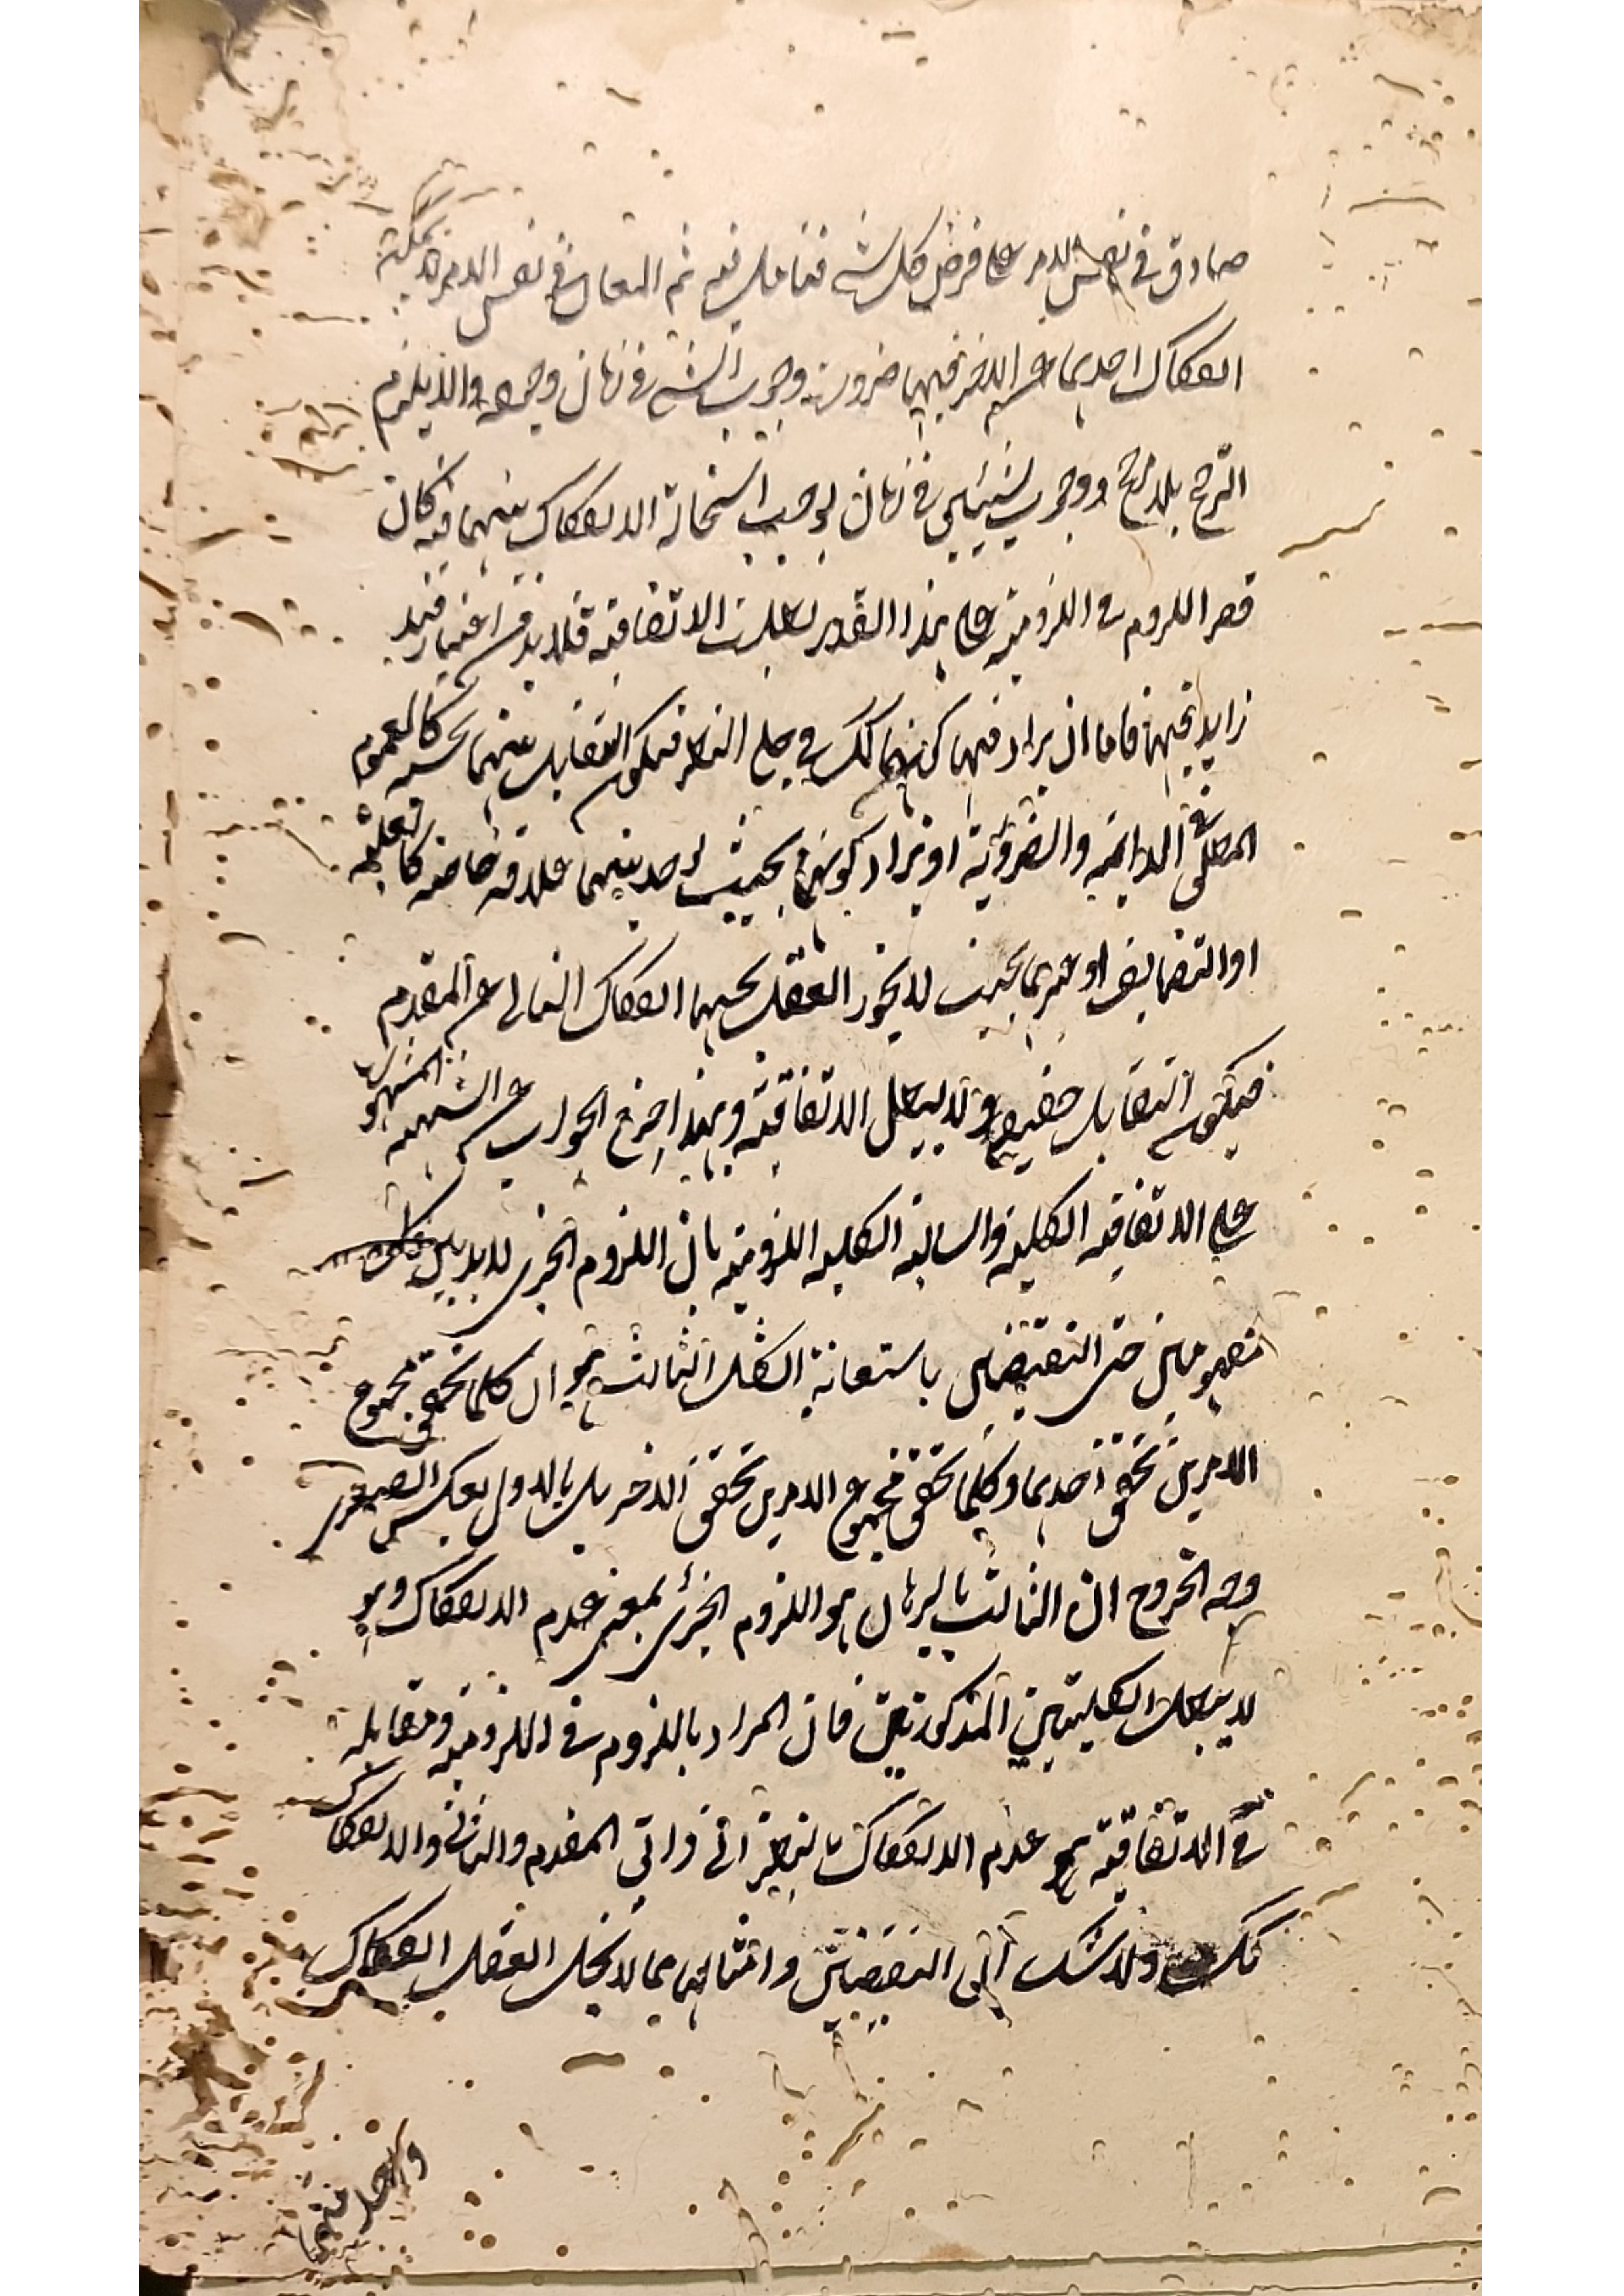 صادق في نفس الامر على فرض كل شيء فتامل فيه ثم التعان في نفس الامر لا يمكن
انفكاك احديهما عن الاخر فيهما ضرورة وجوب الشيء في زمان وجوده والا يلزم
الترجح بلا مرجح ووجوب شيئين في زمان يوجب استحالة الانفكاك بينهما فلو كان
قصر اللزوم في اللزومية على هذا القدر لبطلت الاتفاقية فلا بد من اعتبار قيد
زايد فيها فاما ان يراد فيها كونهما كك في جلي النظر فيكون التقابل بينهما بحسبه كالعموم
المطلق في الدايمة والضرورية او يراد كونهما بحيث يوجد بينهما علاقة خاصة كالعلية
او التضايف او غيرهما بحيث لا يجوز العقل بحسبها انفكاك التالي عن المقدم
فيكون التقابل حقيقيا ولا يبطل الاتفاقية وبهذا خرج الجواب عن الشبهة المشهورة
على الاتفاقية الكلية والسالبة الكلية اللزومية بان اللزوم الجزئي لا بد بين كل
مفهومين حتى النقيضين باستعانة الشكل الثالث هو ان كلما تحقق مجموع
الامرين تحقق احدهما وكلما تحقق مجموع الامرين تحقق الاخر بل بالاول بعكس الصغرى
وجه الخروج ان الثابت بالبرهان هو اللزوم الجزئي بمعنى عدم الانفكاك وهو
لا يبطل الكليتين المذكورتين فان المراد باللزوم في اللزومية ومقابله
في الاتفاقية هو عدم الانفكاك بالنظر الى ذاتي المقدم والتالي والانفكاك
كك ولا شك ان النقيضين وامثالهما مما لا يخل العقل انفكاك
واحد منهما